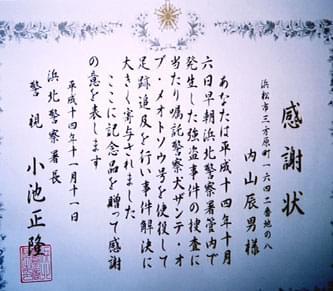 感謝状
浜松市三方原町一六四二番地の八
内山辰男様
あなたは平成十四年十月
六日早朝浜北警察署管内で
発生した強盗事件の捜査に
当たり嘱託警察犬ザンテ・オ
ブ・メオトソウ号を使役して
足跡追及を行い事件解決に
大きく寄与されました
ここに記念品を贈って感謝
の意を表します
平成十四年十一月十一日
浜北警察署長
警視 小池正隆